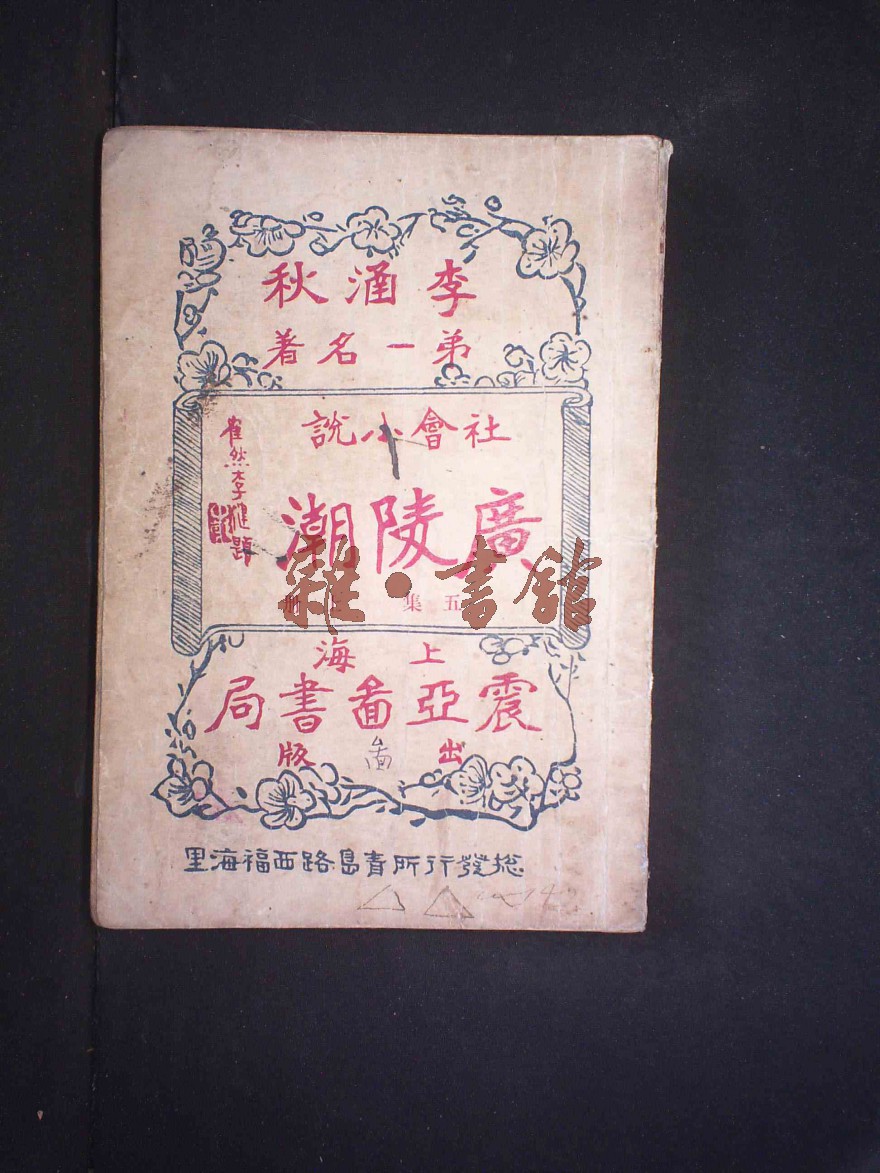 李涵秋
弟一名著
社會小説
廣陵潮
五集 冊
崔然李 題
上海
震亞啚書局
出版
啚
総發行所青島路西福海里
雜·書館